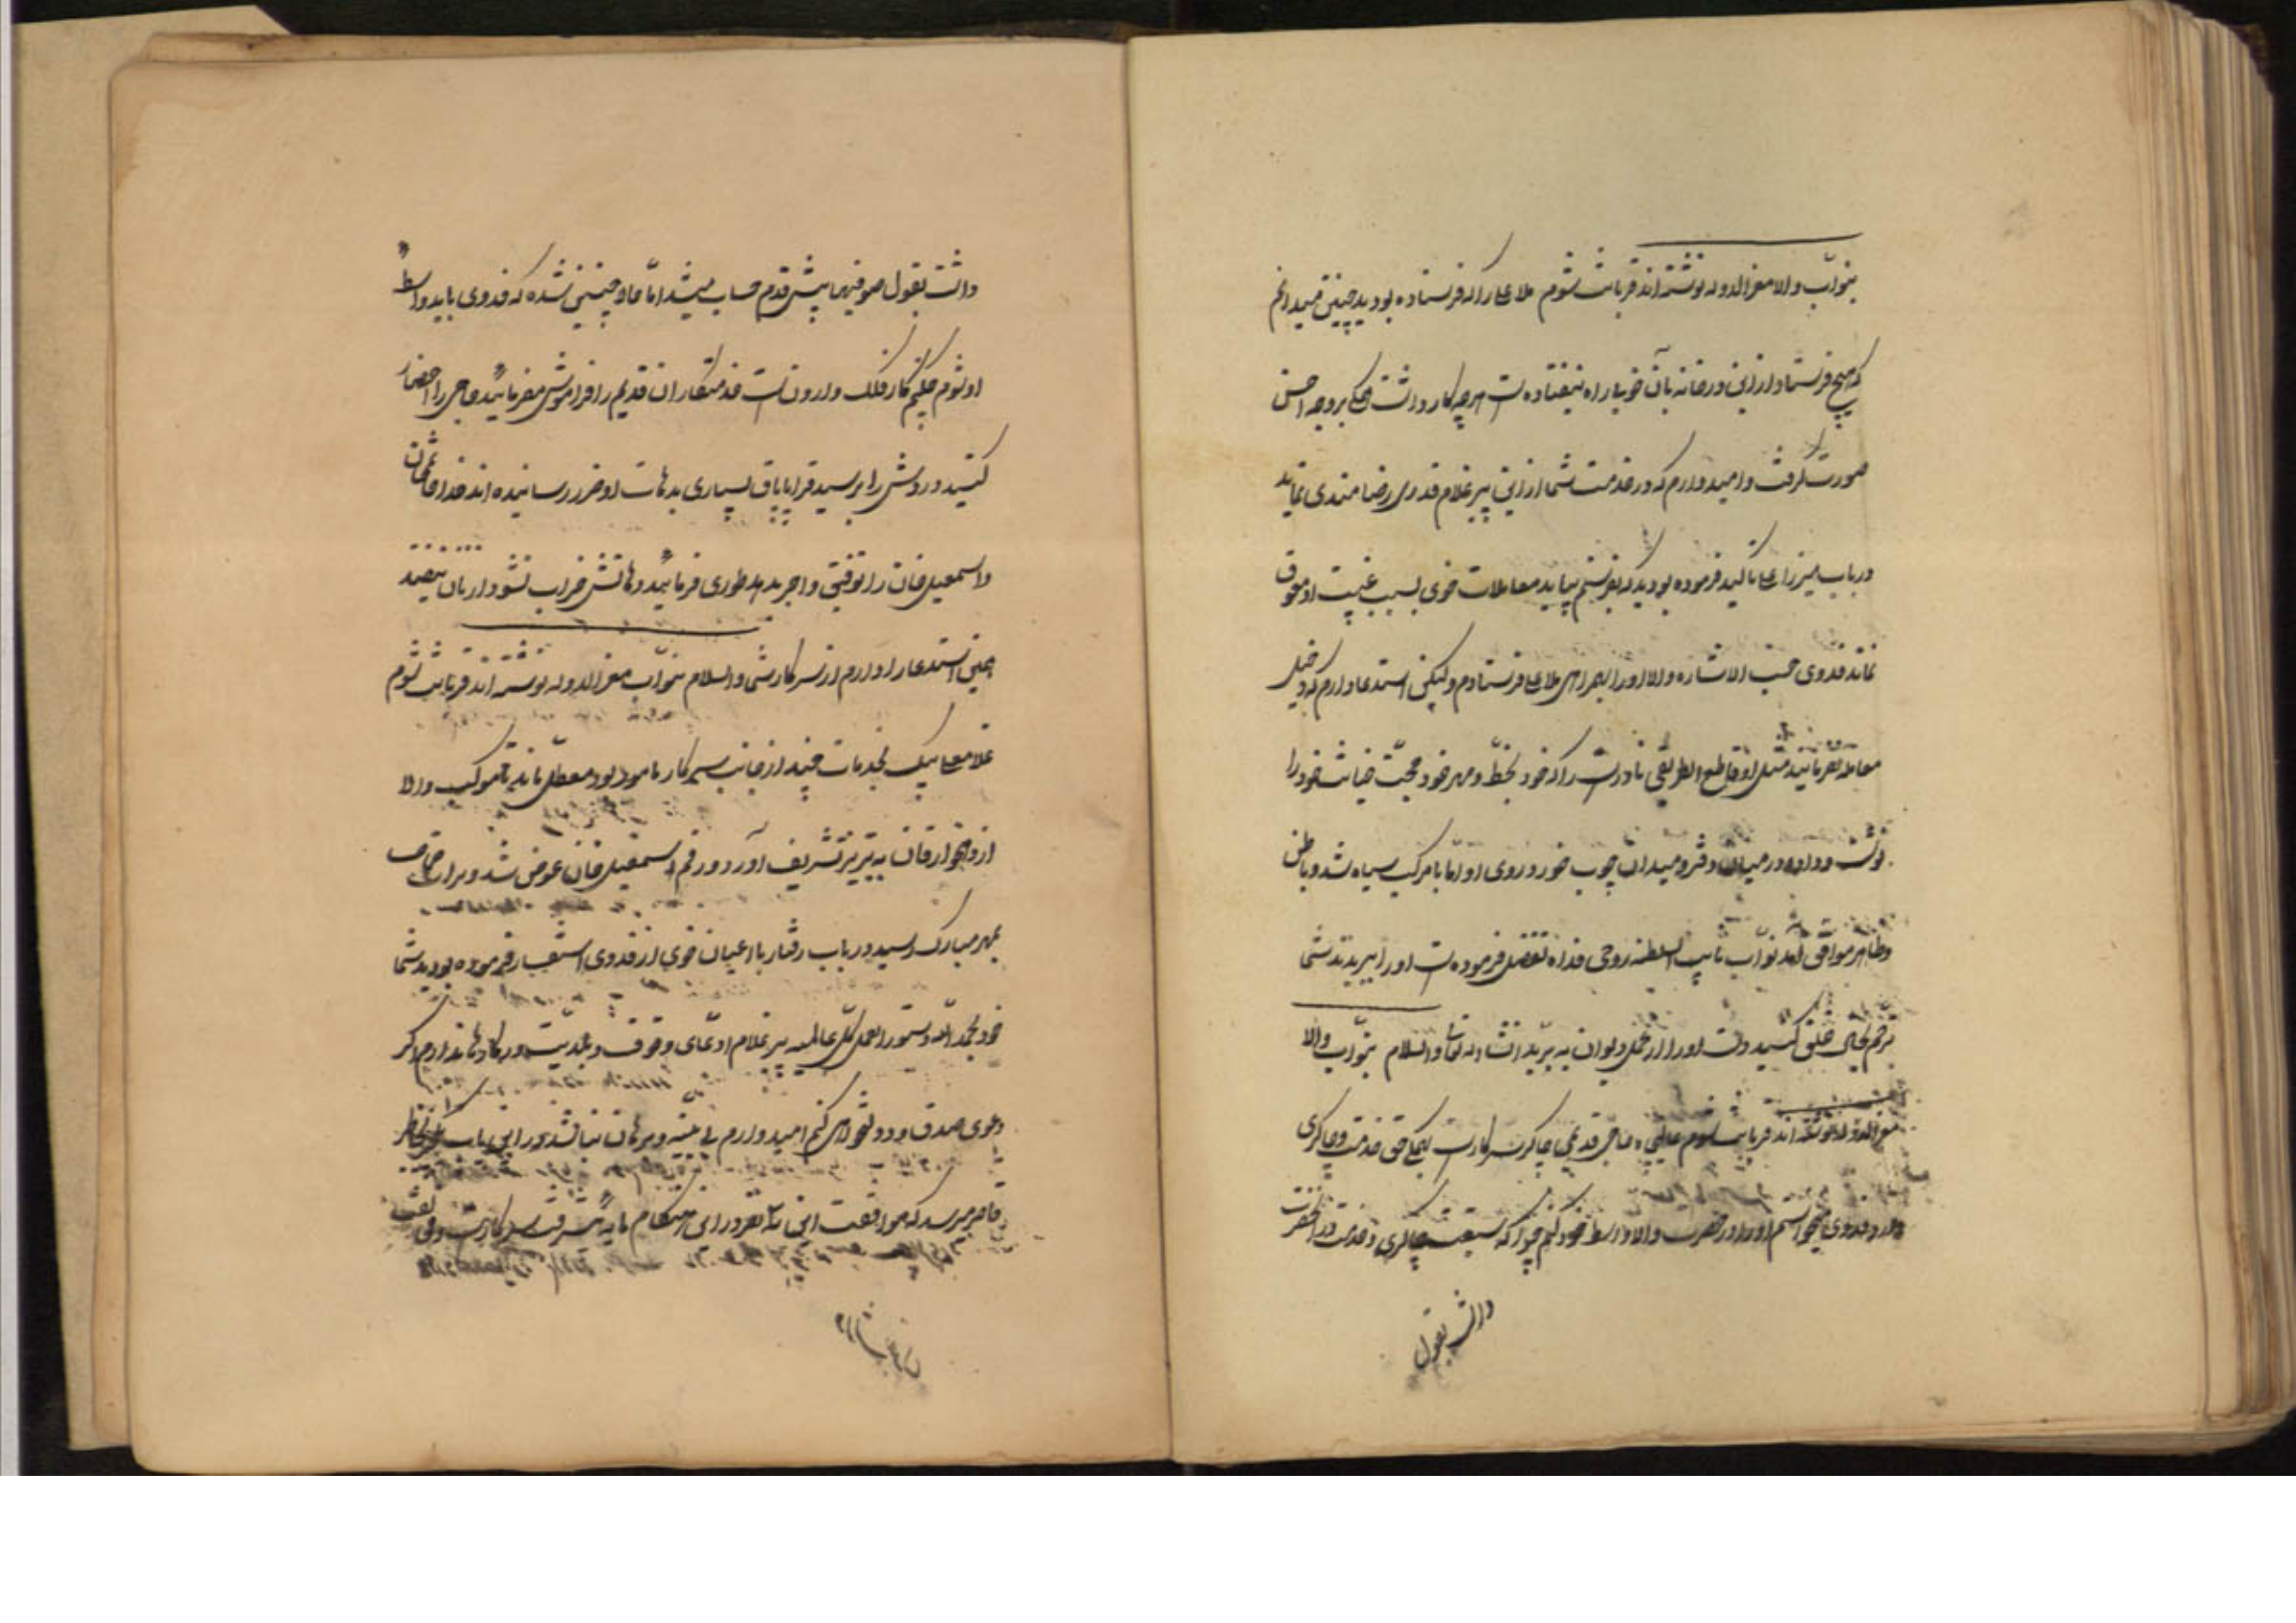 بنواب والا معزالدوله نوشته‌اند قربانت شوم ملا علی را که فرستاده بودید چنین میدانم
که هیچ فرستاد از این ورخانه بآن خوبی راه نیفتاده است هر چه کار داشت همگی بر وجه احسن
صورت گرفت و امیدوارم که در خدمت شما از این پیر غلام قدری رضامندی نماید
در باب میرزا علی تاکید فرموده بودید که بفرستم بیاید معاملات خوی بسبب غیبت او معوق
نماند فدوی حسب الاشاره والا او را بهمراهی ملا علی فرستادم ولیکن استدعا دارم که دخیل
معامله نفرمائید مثل او قاطع الطریقی نادر است که خود بخط و مهر خود حجت خیانت خود را
نوشت و داد در میان دفتر و میدان چوب خورد و روی او اما با مرکب سیاه شد و باطن
و ظاهر موافق آمد نواب نایب السلطنه روحی فداه تفضل فرموده است او را نبریدند شما
ترحم بحال خلق کنید دست او را از عمل دیوان ببرید انشاء الله تعالی والسلام بنواب والا
معزالدوله نوشته‌اند قربانت شوم حاجی قدیمی چاکر سرکار است همگی حق خدمت و چاکری
دارد فدوی میخواستم او را در حضرت والا واسطه خود کنم چرا که سبقت چاکری و خدمت در آنحضرت
داشت بقول
داشت بقول صوفیها پیش قدم حساب میشد اما حالا چنین شده که فدوی باید واسطه
او شوم چکنم کار فلک وارون است خدمتکاران قدیم را فراموش مفرمائید حاجی را احضار
کنید و دردش را برسید قراپاپاق بسیاری بدهات او ضرر رسانیده‌اند خدادادخان
و اسمعیل خان را توقیتی و اجرید هر طوری فرمائید دهاتش خراب نشود از نان نیفتد
همین استدعا را دارم از سرکار شما والسلام بنواب معزالدوله نوشته‌اند قربانت شوم
غلامعلی بیک بخدمات چند از جانب سرکار مامور بود معطل ماند تا موکب والا
از دهخوارقان به تبریز تشریف آورد و رقم اسمعیل خان عوض شد و برات
بمهر مبارک رسید در باب رفتار با اعیان خوی از فدوی استفسار فرموده بودید شما
خود بحمدالله دستورالعمل کل عالمید پیر غلام ادعای وقوف و بلدیت در کارها ندارم اگر
دعوی صدق و دولتخواهی کنم امیدوارم بی بینه و برهان نباشد در این باب بخاطر
قاصر میرسد که موافقت این سه نفر در این هنگام مایه پیشرفت سرکار است و